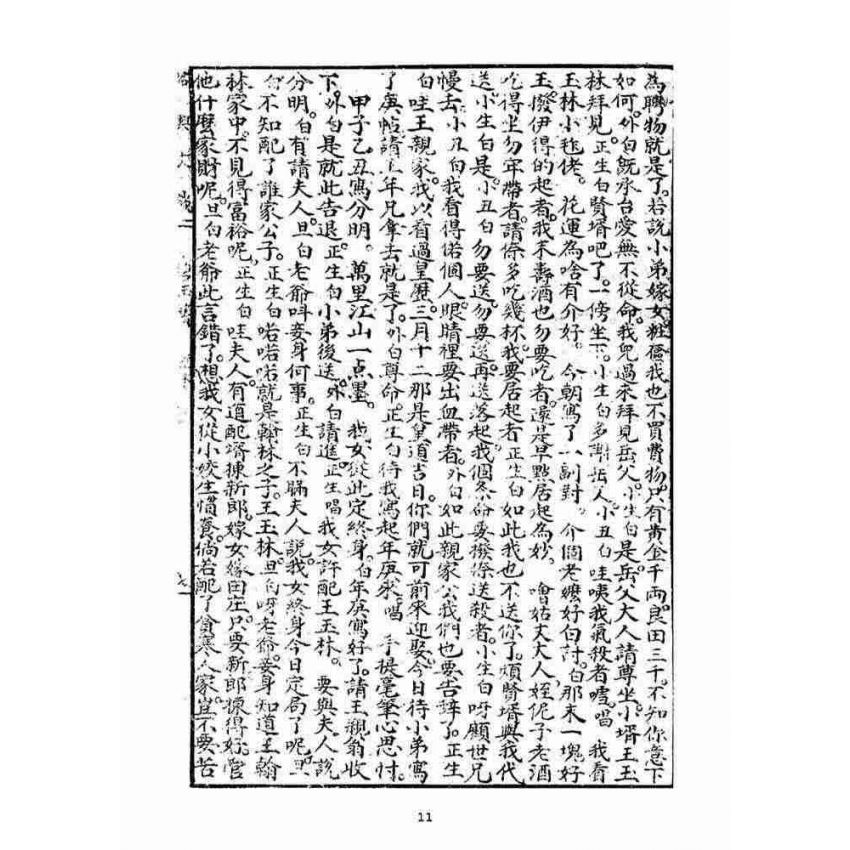 為聘物就是了。若說小弟嫁女粧奩我也不買費物只有黃金千兩。良田三千。不知你意下
如何。外白既承台愛無不從命。我兒過來拜見岳父。小生白是。岳父大人請尊坐。小壻王玉
林拜見。正生白賢壻吧了。一傍坐下。小生白多謝岳人。小丑白哇咦我氣殺者噓。唱 我看
玉林小 佬。花運為啥有介好。今朝寫了一副對。介個老嬤好白討。白那末一塊好
玉。撥伊得的起者。我末壽酒也勿要吃者。還是早點居起為妙。 噲姑丈大人。姪伲子老酒
吃得坐勿牢帶者。請倷多吃幾杯。我要居起者 正生白如此我也不送你了。煩賢壻與我代
送。小生白是。小丑白 勿要送。勿要送。再送落起。我個条命要撥倷送殺者 小生白 呀顧世兄
慢去。小丑白我看得偌個人。眼睛裡要出血帶者。外白如此親家公我們也要告辞了。正生
白哇王親家。我以看過皇歷。三月十二那是皇道吉日。你們就可前來迎娶。今日待小弟寫
了庚帖。請上年兄拿去就是了。外白尊命。正生白待我寫起年庚來。唱 手提毫筆心思忖。
甲子乙丑寫分明。萬里江山一点墨。我女從此定終身。白年庚寫好了。請王親翁收
下。外白是就此告退。正生白小弟後送。外白請進。正生唱 我女許配王玉林。要與夫人說
分明。白有請夫人。旦白老爺叫妾身何事。正生白不瞞夫人說。我女終身今日定局了呢。旦
白不知配了誰家公子。正生白喏喏喏就是翰林之子。王玉林。旦白呀老爺。妾身知道王翰
林家中。不見得富裕呢。正生白 哇夫人。有道配壻揀新郎。嫁女嫁田庄。只要新郎揀得好。管
他什麼家財呢。旦白老爺此言錯了。想我女從小姣生慣養。倘若配了貧寒人家。豈不要苦
11